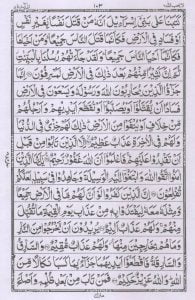 ١٠٣
كَتَبْنَا عَلٰى بَنِيْٓ اِسْرَآءِيْلَ اَنَّهٗ مَنْ قَتَلَ نَفْسًۢا بِغَيْرِ نَفْسٍ
اَوْ فَسَادٍ فِي الْاَرْضِ فَكَاَنَّمَا قَتَلَ النَّاسَ جَمِيْعًا وَمَنْ اَحْيَاهَا
فَكَاَنَّمَآ اَحْيَا النَّاسَ جَمِيْعًا وَلَقَدْ جَآءَتْهُمْ رُسُلُنَا بِالْبَيِّنٰتِ
ثُمَّ اِنَّ كَثِيْرًا مِّنْهُمْ بَعْدَ ذٰلِكَ فِي الْاَرْضِ لَمُسْرِفُوْنَ اِنَّمَا
جَزٰٓؤُا الَّذِيْنَ يُحَارِبُوْنَ اللّٰهَ وَرَسُوْلَهٗ وَيَسْعَوْنَ فِي الْاَرْضِ
فَسَادًا اَنْ يُّقَتَّلُوْٓا اَوْ يُصَلَّبُوْٓا اَوْ تُقَطَّعَ اَيْدِيْهِمْ وَاَرْجُلُهُمْ
مِّنْ خِلَافٍ اَوْ يُنْفَوْا مِنَ الْاَرْضِ ذٰلِكَ لَهُمْ خِزْيٌ فِي الدُّنْيَا
وَلَهُمْ فِي الْاٰخِرَةِ عَذَابٌ عَظِيْمٌ اِلَّا الَّذِيْنَ تَابُوْا مِنْ قَبْلِ
اَنْ تَقْدِرُوْا عَلَيْهِمْ فَاعْلَمُوْٓا اَنَّ اللّٰهَ غَفُوْرٌ رَّحِيْمٌ يٰٓاَيُّهَا الَّذِيْنَ
اٰمَنُوا اتَّقُوا اللّٰهَ وَابْتَغُوْٓا اِلَيْهِ الْوَسِيْلَةَ وَجَاهِدُوْا فِيْ سَبِيْلِهٖ لَعَلَّكُمْ
تُفْلِحُوْنَ اِنَّ الَّذِيْنَ كَفَرُوْا لَوْ اَنَّ لَهُمْ مَّا فِي الْاَرْضِ جَمِيْعًا
وَّمِثْلَهٗ مَعَهٗ لِيَفْتَدُوْا بِهٖ مِنْ عَذَابِ يَوْمِ الْقِيٰمَةِ مَا تُقُبِّلَ
مِنْهُمْ وَلَهُمْ عَذَابٌ اَلِيْمٌ يُرِيْدُوْنَ اَنْ يَّخْرُجُوْا مِنَ النَّارِ
وَمَا هُمْ بِخٰرِجِيْنَ مِنْهَا وَلَهُمْ عَذَابٌ مُّقِيْمٌ وَالسَّارِقُ
وَالسَّارِقَةُ فَاقْطَعُوْٓا اَيْدِيَهُمَا جَزَآءًۢ بِمَا كَسَبَا نَكَالًا مِّنَ
اللّٰهِ وَاللّٰهُ عَزِيْزٌ حَكِيْمٌ فَمَنْ تَابَ مِنْۢ بَعْدِ ظُلْمِهٖ وَاَصْلَحَ